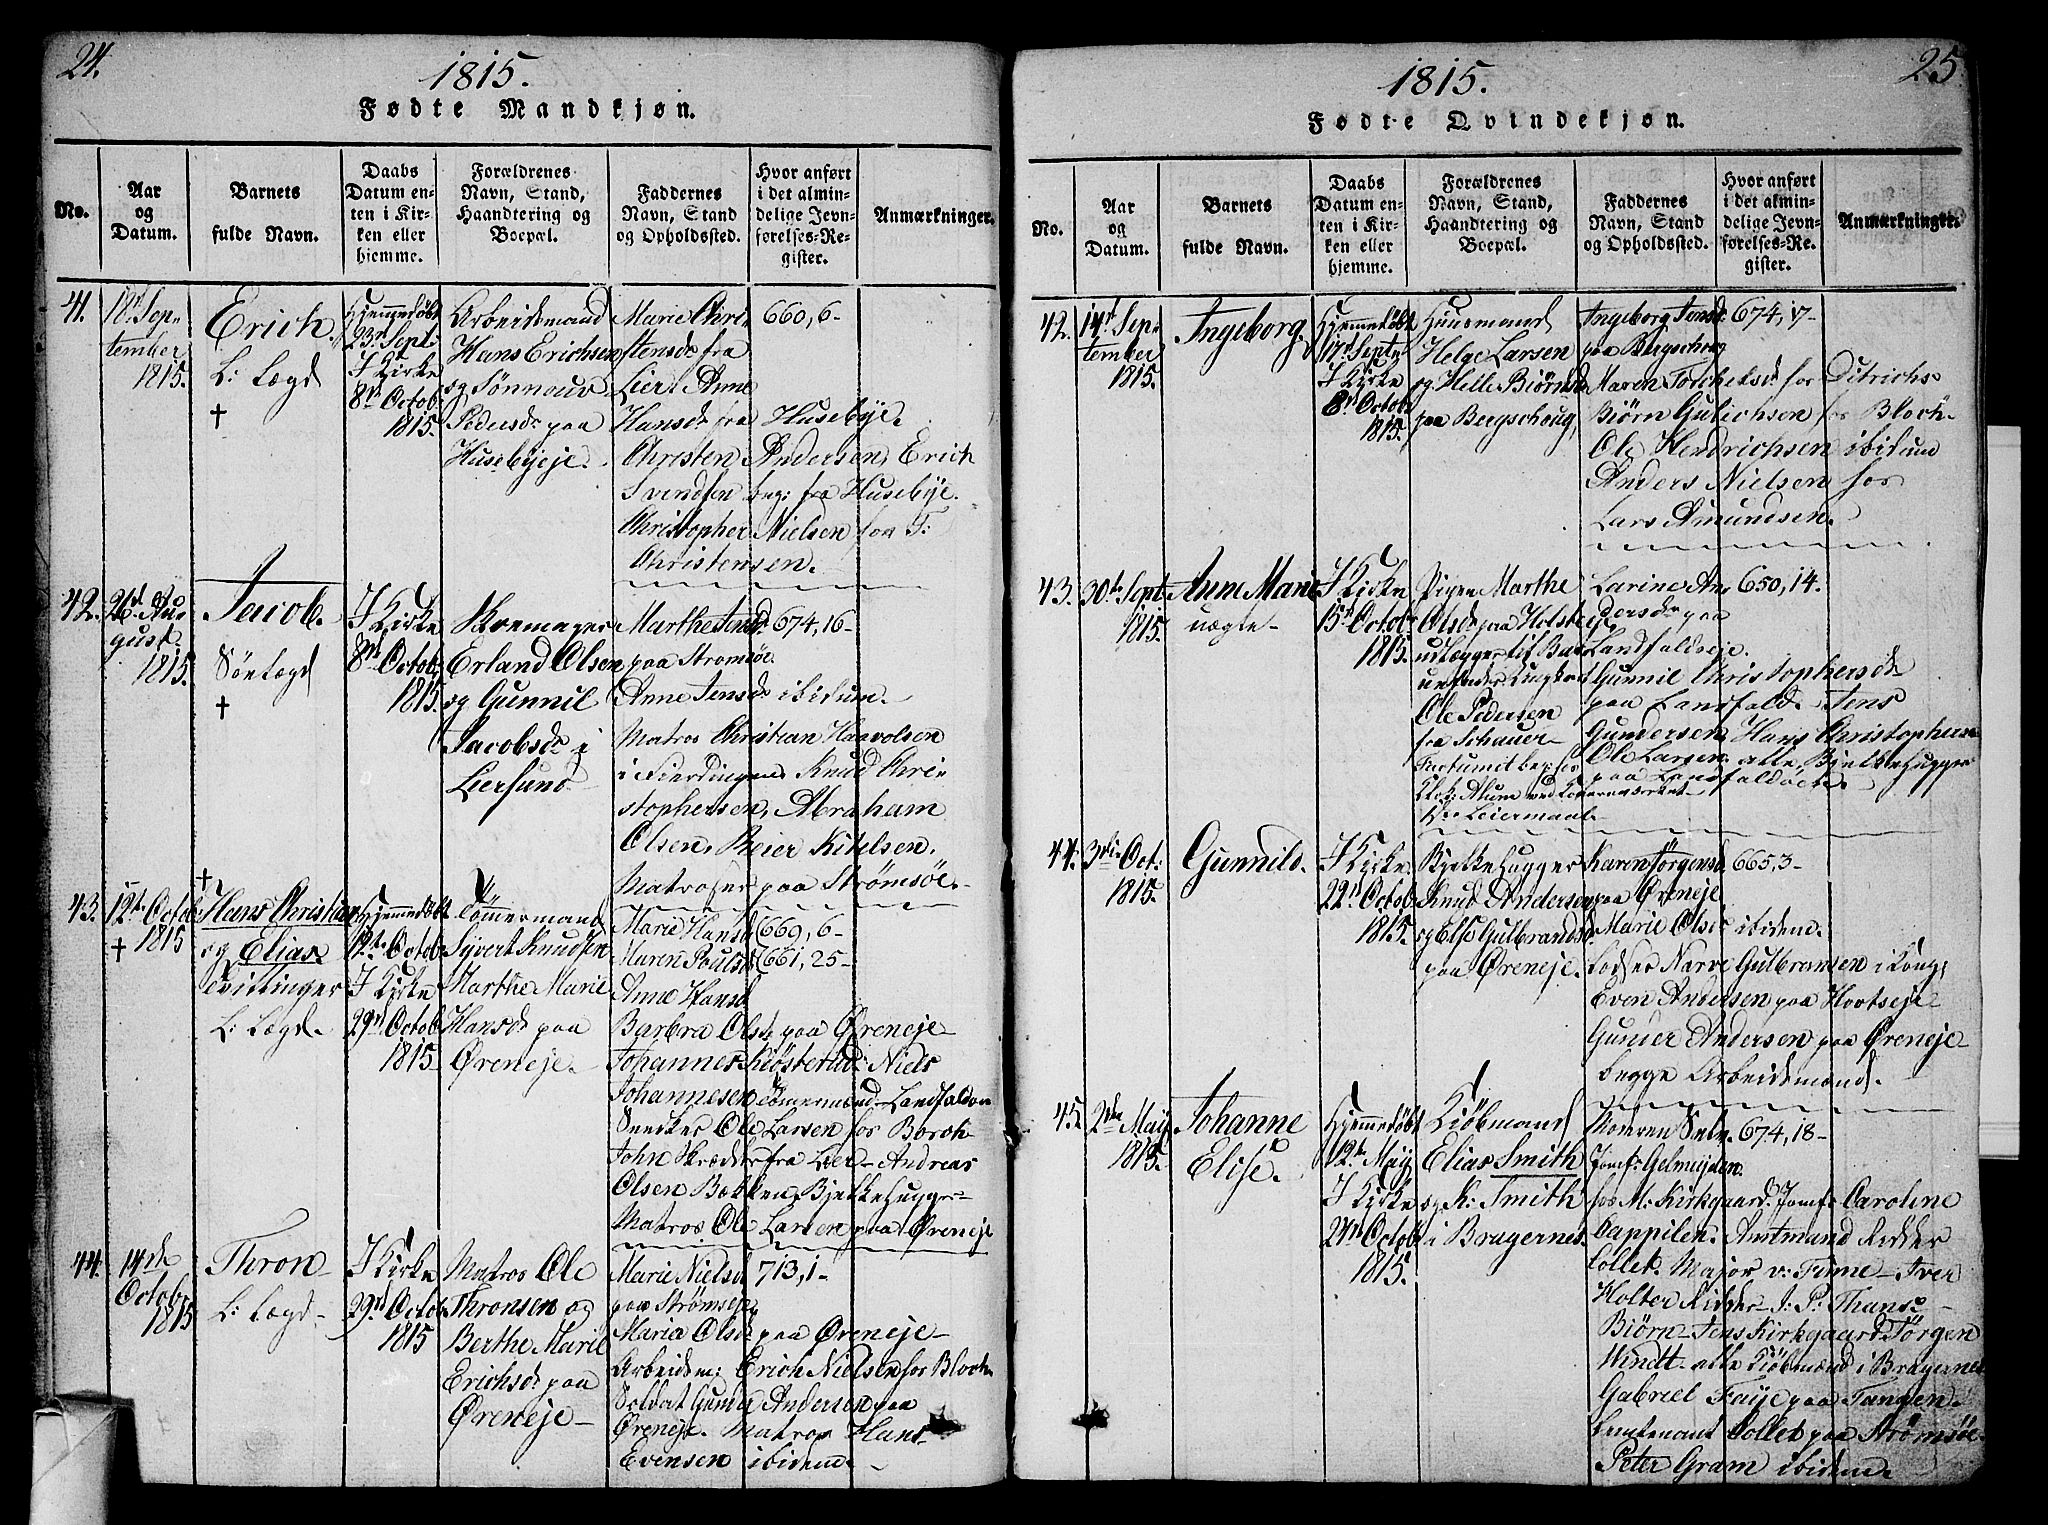 24.
1815.
Fødte Mandkjøn.
No.
Aar
og
Datum.
Barnets
fulde Navn.
Daabs
Datum en-
ten i Kir-
ken eller
hjemme.
Forældrenes
Navn, Stand,
Haandtering og
Boepæl.
Faddernes
Navn, Stand
og Opholdssted.
Hvor anført
i det almin-
delige Jevn-
førelses-Re-
gister.
Anmærkninger.
41.
18d Sep-
tember
1815.
Erich.
L: Lægd
†
Hjemmedøbt
23d Sept:
I Kirke
8d Octob:
1815.
Arbeidsmand
Hans Erichsen
og Sønnouv
Pedersdr paa
Husebyeje.
Marie Chri-
stensdr fra
Lier. Anne
Hansdr fra Husebye.
Christen Andersen, Erich
Svendsen beg: fra Husebye.
Christopher Nielsen for T:
Christensen.
660, 6-
42.
26d Au-
gust.
1815.
Jacob.
Søelægd
†
I Kirke
8d Octob:
1815.
Erland Olsen
og Gunnil
Jacobsdr i
Liersund
Marthe Jensd.
paa Strømsøe
Anne Jensdr ibidum.
Matros Christian Haavolsen
i Fierdingen. Knud Chri-
stophersen, Abraham
Olsen, Peier Kittelsen.
Matroser paa Strømsøe.
674, 16-
43.
12te Octob
† 1815
†
Hans Christian
og Elias
Tvillinger
L: Lægd.
Hjemmedøbt
12te Octob:
I Kirke
29d Octob
1815.
Tømmermand
Syvert Knudsen
Marthe Marie
Hansdr paa
Øreneje.
Marie Hansd
Maren Poulsd
Anne Hansd
Barbra Olsdr paa Øreneje
Johannes Kiøsterud. Niels
Johannesen Tømermænd Landfaldøen
Snecker Ole Larsen for Borch
John Skrædder fra Lier - Andreas
Olsen Bakken Bjelkehugger
Matros Ole Larsen paa Øreneje
669, 6-
661, 25-
44.
14de
Octobr
1815
Thron
L: Lægd
I Kirke
29d Octob
1815
Matros Ole
Thronsen og
Berthe Marie
Erichsdr paa
Øreneje
Marie Nielsd
paa Strømsøe
Maria Olsdr paa Øreneje
Arbeidsm: Erich Nielsen for Bloch.
Soldat Gunder Andersen paa
Øreneje. Matros Hans
Evensen ibidem.
713, 1-
25
1815.
Fødte Qvindekjøn.
No.
Aar
og
Datum.
Barnets
fulde Navn.
Daabs
Datum en-
ten i Kir-
ken eller
hjemme.
Forældrenes
Navn, Stand,
Haandtering og
Boepæl.
Faddernes
Navn, Stand
og Opholdssted.
Hvor anført
i det almin-
delige Jevn-
førelses-Re-
gister.
Anmærkninger.
42.
14d Sep-
tember
1815.
Ingeborg.
Hjemmedøbt
17d Septr
I Kirke
8d Octob
1815.
Huusmand
Helge Larsen
og Helle Biørnsd
paa Bergschoug,
Ingeborg Jensd.
paa Bergschoug
Maren Torchelsd for Ditrichs
Biørn Gulichsen for Bloch.
Ole Hendrichsen ibidum
Anders Nielsen for
Lars Amundsen.
674, 17-
43.
30te Sept
1815.
Anne Marie
uægte
I Kirke
15d Octob
1815.
Pigen Marthe
Olsdr paa Holsteje
udlægger til Bar-
Ole Pedersen
fra Schauer
Leiermaal
Larine An-
dersdr paa
Landfaldeje.
Gunnil Christophersdr
paa Landfald. Jens
Gundersen, Hans Christophersen
Ole Larsen. alle Bjelkehugger
paa Landfaldøen.
650, 14.
44.
3die Oct:
1815.
Gunnild.
I Kirke.
22d Octob.
1815.
Bjelkehugger
Knud Andersen
og Else Gulbrandsd
paa Øreneje.
Karen Jørgensd
paa Øreneje
Marie Olsdr ibidem.
Lodser Narve Gulbransen i Kong:
Even Andersen paa Hootseje
Gunder Andersen paa Øreneje
begge Arbeidsmænd.
665, 3-
45.
2den May
1815.
Johanne
Elise.
Hjemmedøbt
12te May
I Kirke
24d Octob
1815.
Kiøbmand
Elias Smith
og K: Smith
i Bragernes.
Moeren Selv.
Jomf: Gelmeyden.
for M: Kirkgaard. Jomf: Caroline
Cappelen. Amtmand Ridder
Collet. Major v: Finne - Iver
Holter Ridder - J: P: Thams
Biørn - Jens Kirkgaard Jørgen
Windt. alle Kiøbmænd i Bragernes
Gabriel Faye paa Tangen.
Leutenant Collet paa Strømsøe
Peter Gram ibidem.
674, 18-